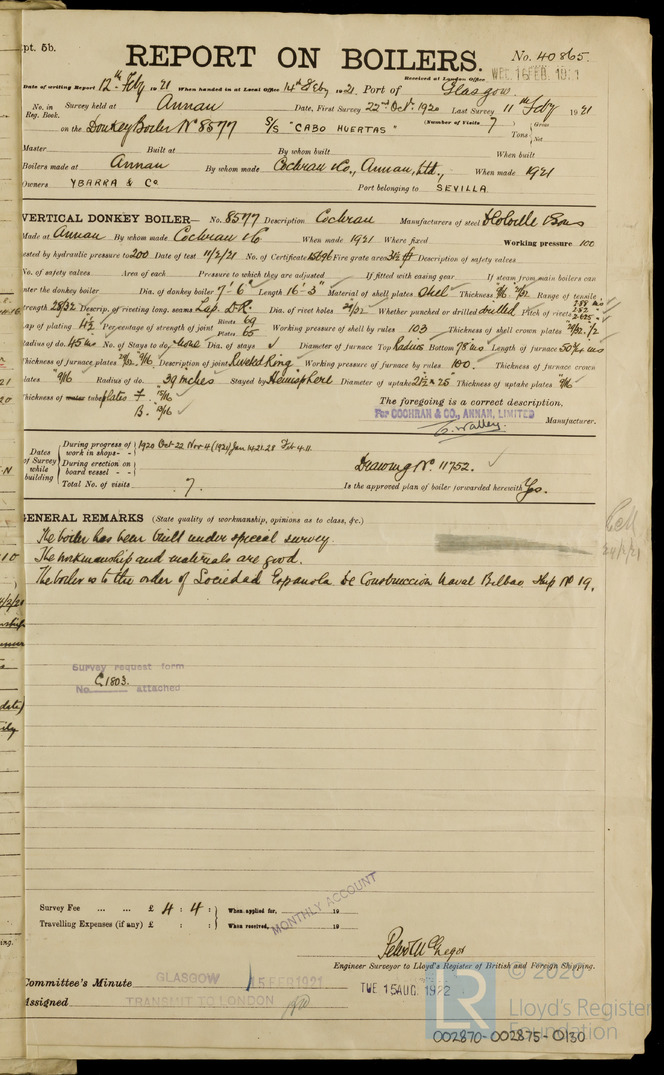 pt. 5b.
REPORT ON BOILERS.
No. 40865.
Received at London Office WED. 16 FEB. 1921
Date of writing Report 12th Feby 1921 When handed in at Local Office 14th Feby 1921. Port of Glasgow.
No. in Reg. Book. Survey held at Annan Date, First Survey 22nd Oct. 1920 Last Survey 11th Feby 1921
(Number of Visits 7)
on the Donkey Boiler No 8577 S/S "CABO HUERTAS" Tons { Gross Net
Master Built at By whom built When built
Boilers made at Annan By whom made Cochran & Co., Annan, Ltd., When made 1921
Owners YBARRA & Co. Port belonging to SEVILLA
VERTICAL DONKEY BOILER— No. 8577 Description Cochran Manufacturers of steel D Colville & Sons
Made at Annan By whom made Cochran & Co When made 1921 Where fixed Working pressure 100
ested by hydraulic pressure to 200 Date of test 11/2/21 No. of Certificate Fire grate area Description of safety valves
No. of safety valves Area of each Pressure to which they are adjusted If fitted with casing gear If steam from main boilers can
enter the donkey boiler Dia. of donkey boiler 7'-6" Length 16'-3" Material of shell plates Steel Thickness Range of tensile
strength 28/32 Descrip. of riveting long. seams Lap. D.R. Dia. of rivet holes Whether punched or drilled drilled Pitch of rivets
Lap of plating Percentage of strength of joint Rivets 69 Plates 65 Working pressure of shell by rules 103 Thickness of shell crown plates
Radius of do. 45 ins No. of Stays to do. none Dia. of stays ✓ Diameter of furnace Top Radius Bottom 78 ins Length of furnace
Thickness of furnace plates Description of joint Riveted Ring Working pressure of furnace by rules 100. Thickness of furnace crown
plates 9/16 Radius of do. 39 inches Stayed by Hemisphere Diameter of uptake Thickness of uptake plates
Thickness of water tube plates F. 15/16
B. 13/16
The foregoing is a correct description,
For COCHRAN & CO., ANNAN, LIMITED
Manufacturer.
Dates of Survey while building
During progress of work in shops - - 1920 Oct 22 Nov 4 (1921) Jan 14.21.28 Feb 4.11.
During erection on board vessel - -
Total No. of visits 7.
Drawing No. 11752.
Is the approved plan of boiler forwarded herewith Yes.
GENERAL REMARKS (State quality of workmanship, opinions as to class, &c.)
The boiler has been built under special survey.
The workmanship and materials are good.
The boiler is to the order of Sociedad Espanola de Construccion Naval Bilbao Ship No 19.
Survey request form
No. C1803. attached
Survey Fee ... ... £ 4 : 4 : When applied for, 19
MONTHLY ACCOUNT
Travelling Expenses (if any) £ : : When received, 19
Engineer Surveyor to Lloyd's Register of British and Foreign Shipping.
Committee's Minute GLASGOW 15 FEB 1921
TUE 15 AUG. 1922
Assigned TRANSMIT TO LONDON
© 2020
LR
Lloyd's Register
Foundation
002870-002875-0130